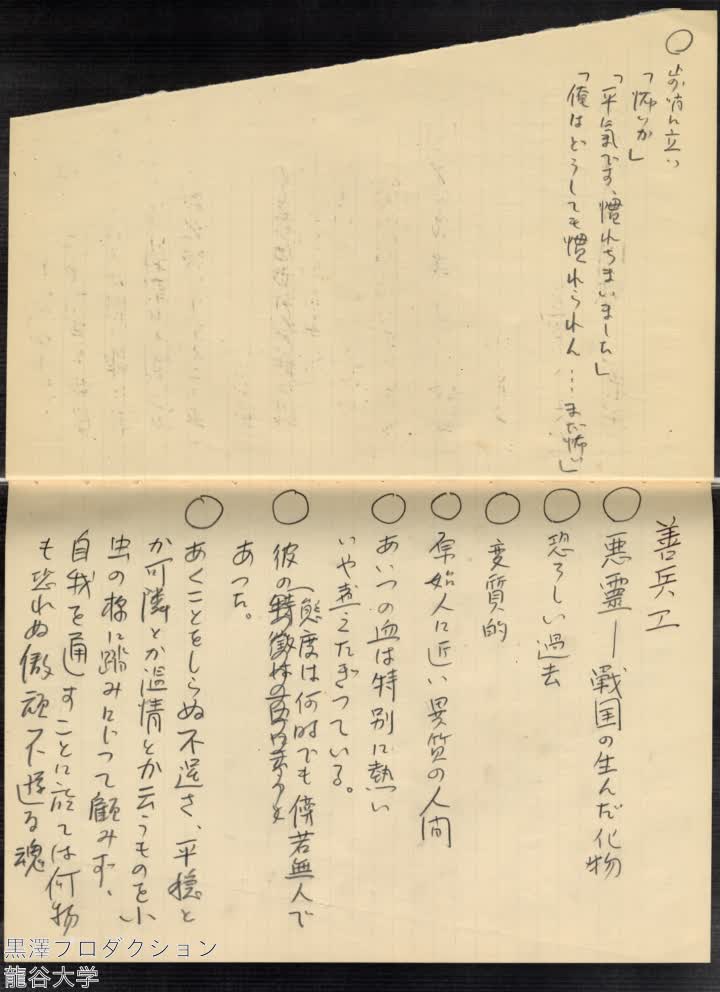 「怖いか」
「平氣です、慣れちまいました」
「俺はどうしても慣れられん…まだ怖い」
善兵エ
○悪霊―戰国の生んだ化物
○恐ろしい過去
○変質的
○原始人に近い異質の人間
○あいつの血は特別に熱い
いや煮えたぎつている。
○彼の態度は何時でも傍若無人で
あつた。
○あくことをしらぬ不逞さ、平穏と
か可隣とか温情とか云うものを小
虫の様に踏みにじつて顧みず、
自我を通すことに於ては何物
も恐れぬ傲頑不遜る魂
黒澤プロダクション
龍谷大学